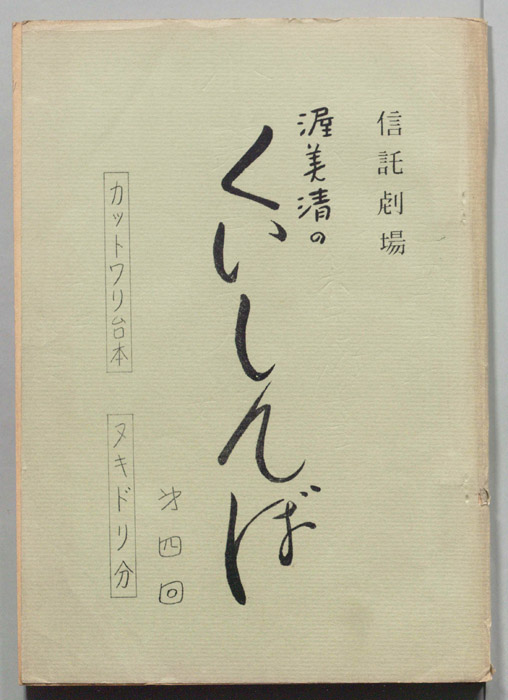 信託劇場
渥美清の
くいしんぼ
才四回
カットワリ台本
ヌキドリ分